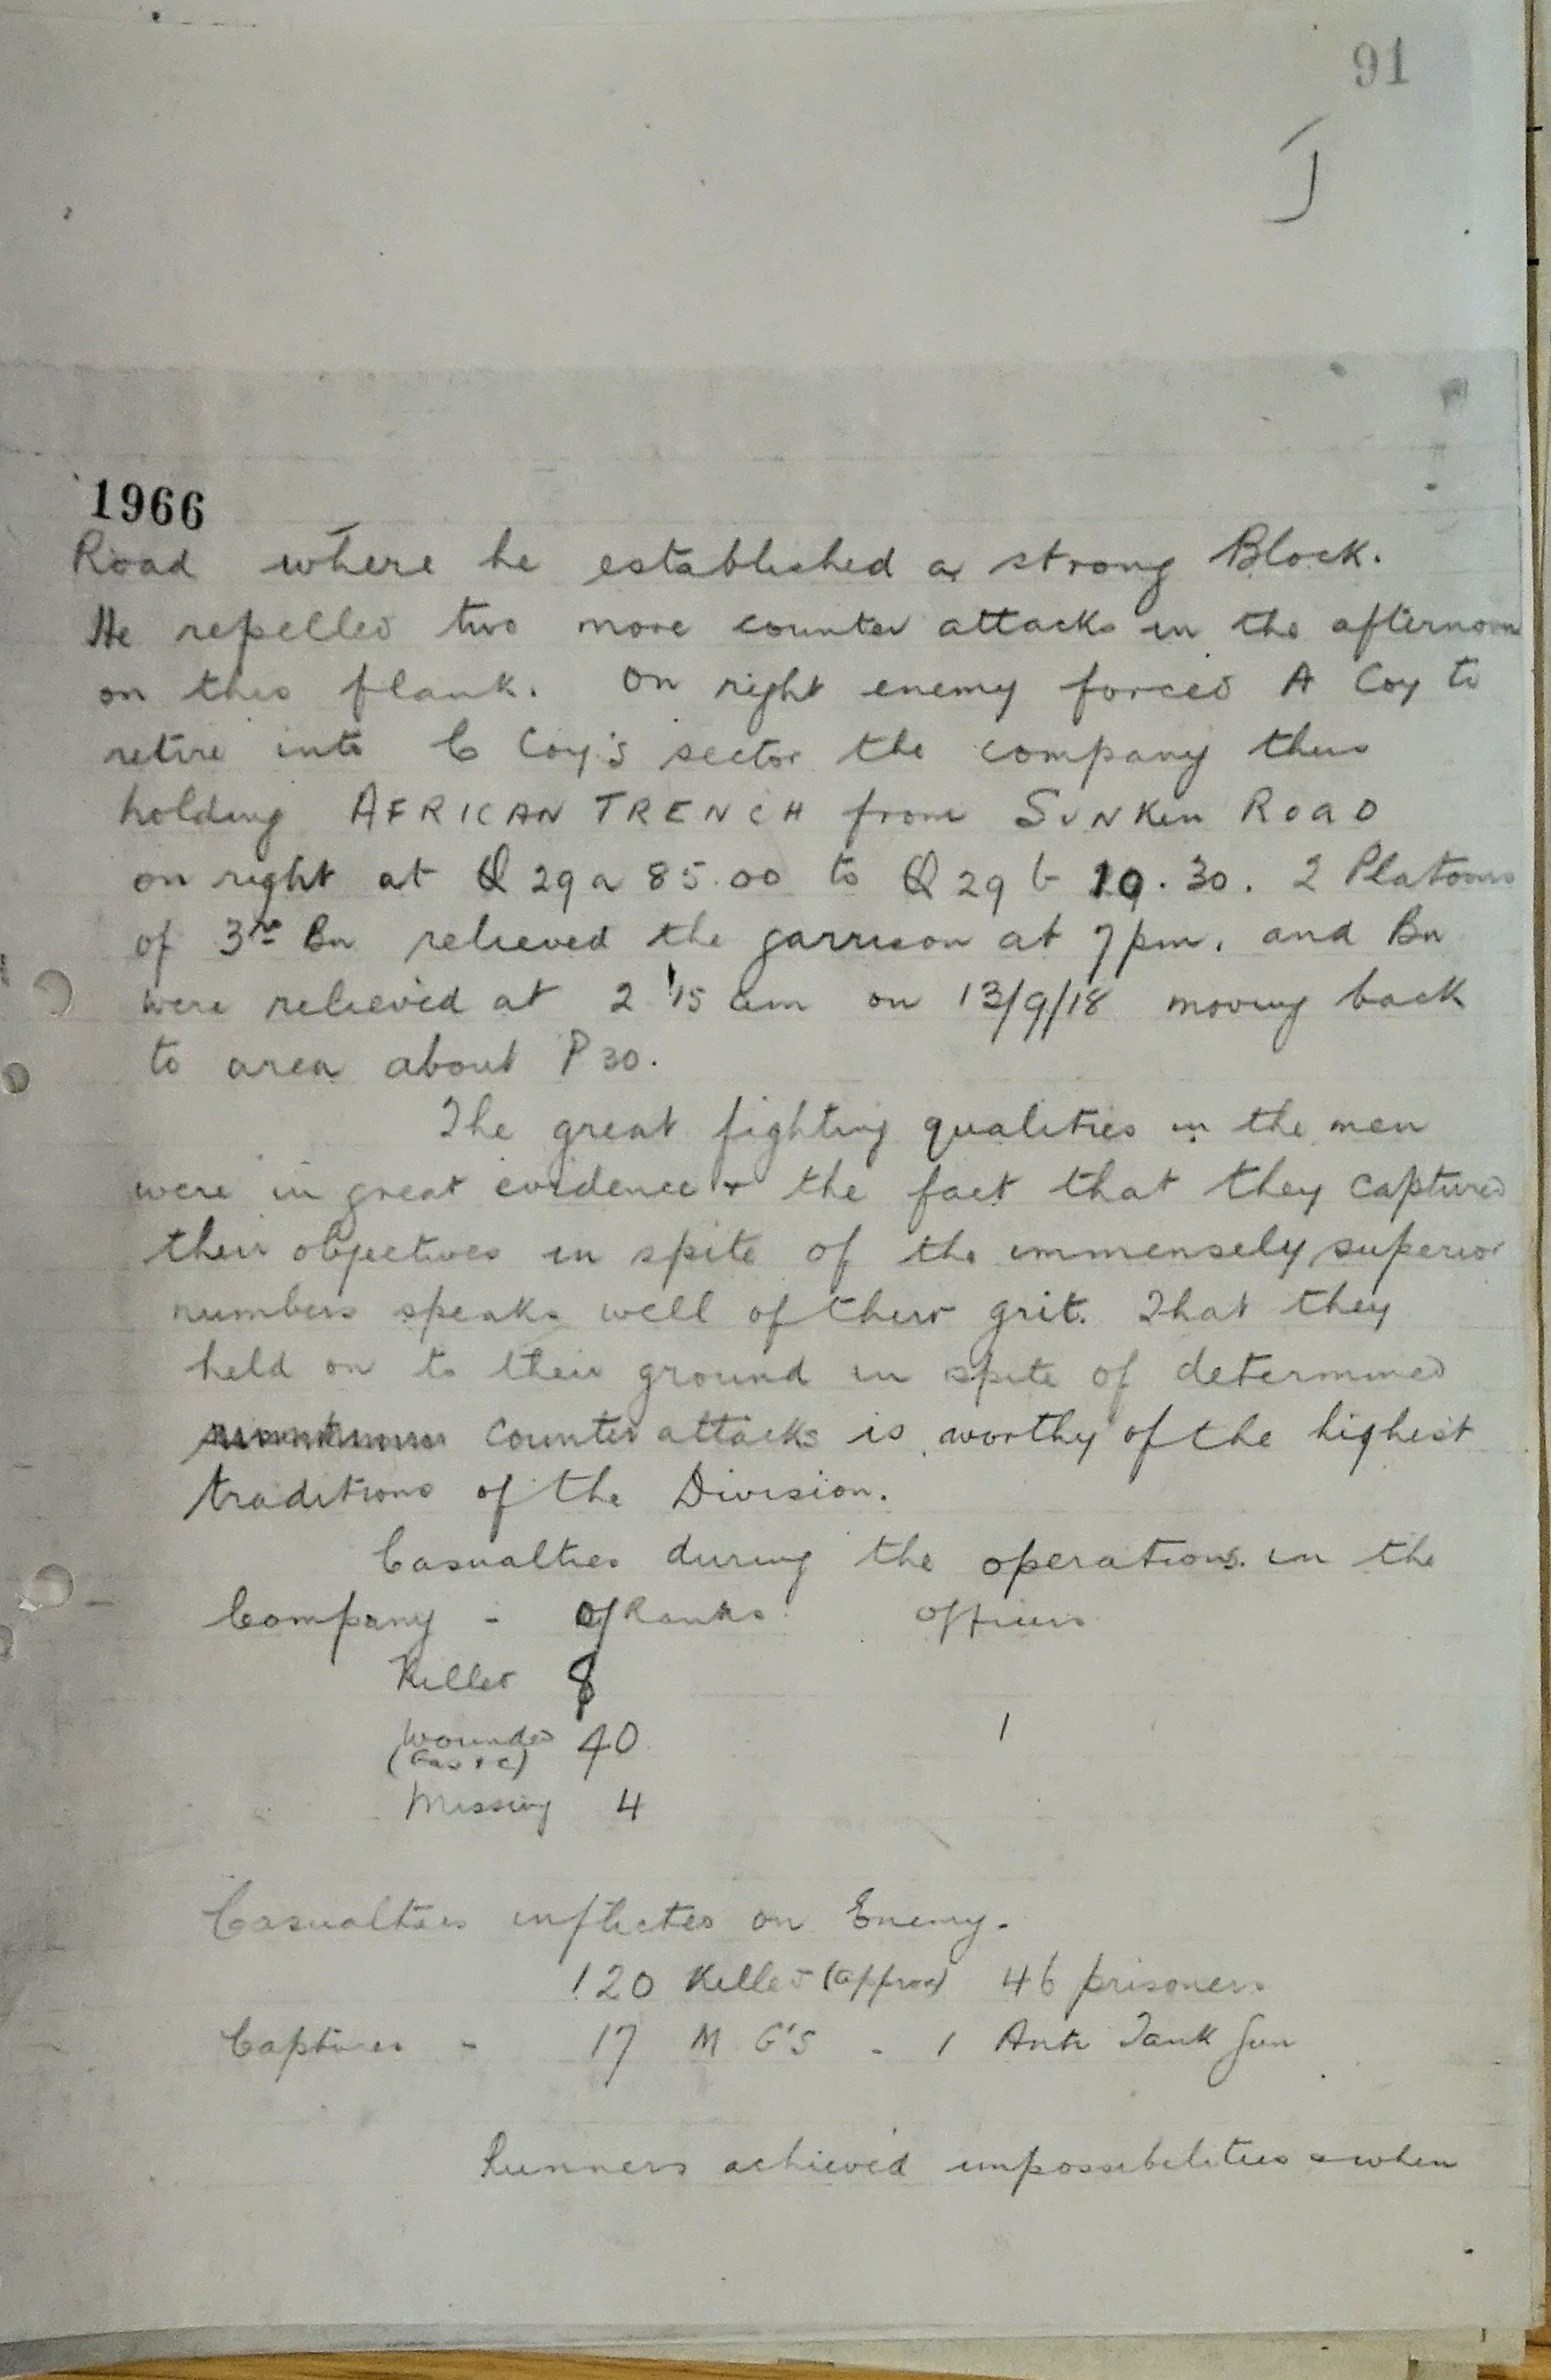 91
J
1966
Road where he established a strong Block.
He repelled two more counter attacks in the afternoon
on this flank. On right enemy forced A Coy to
retire into C Coy's sector the company thus
holding AFRICAN TRENCH from SUNKen ROaD
on right at Q 29 a 85.00 to Q 29 b 10.30. 2 Platoons
of 3rd Bn relieved the garrison at 7 pm. and Bn
were relieved at 2 15 am on 13/9/18 moving back
to area about P 30.
The great fighting qualities in the men
were in great evidence + the fact that they captured
their objectives in spite of the immensely superior
numbers speaks well of their grit. That they
held on to their ground in spite of determined
counter attacks is worthy of the highest
traditions of the Division.
Casualties during the operations in the
Company - O/Ranks Officers
Killed 8
Wounded 40 1
(Gas &c)
Missing 4
Casualties inflicted on Enemy.
120 Killed (approx) 46 prisoners
Captures - 17 M G'S - 1 Anti Tank Gun
Runners achieved impossibilities & when